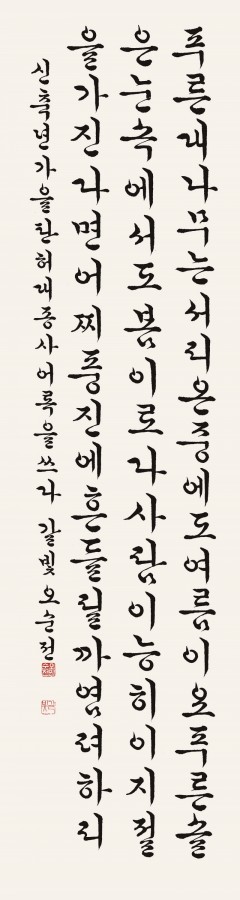 푸른대나무는서리온중에도여름이오푸른솔
은눈속에서도봄이로다사람이능히이지절
을가진다면어찌풍진에흔들릴까염려하리
신축년가을탄허대종사어록을쓰다 갈빛오순전